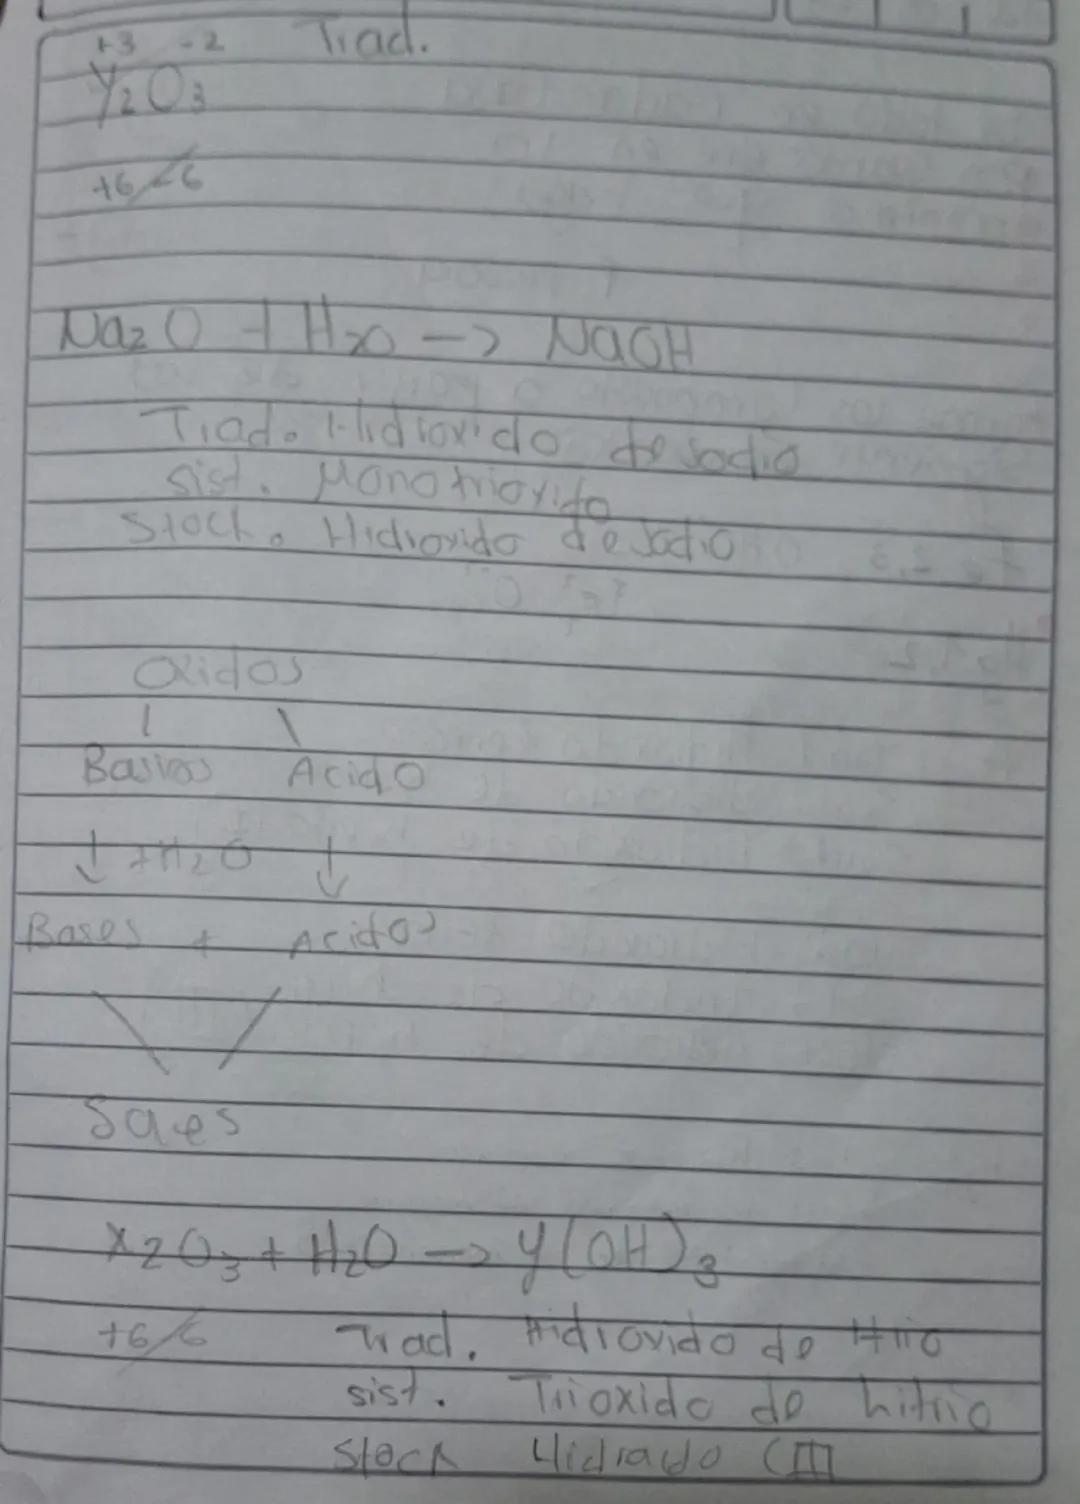 +3 -2 Trad.
Y₂O₃
+6/-6
Na₂O + H₂O -> NaOH
Trad. Hidroxido de sodio
sist. Monotrioxido
Stock. Hidroxido de sodio
Oxidos
Basicos Acido
↓ +H₂O ↓
Bases + Acidos
Sales
X₂O₃ + H₂O -> Y(OH)₃
+6/6 Trad. Hidroxido de itrio
sist. Trioxido de hitrio
Stock Hidrado (III